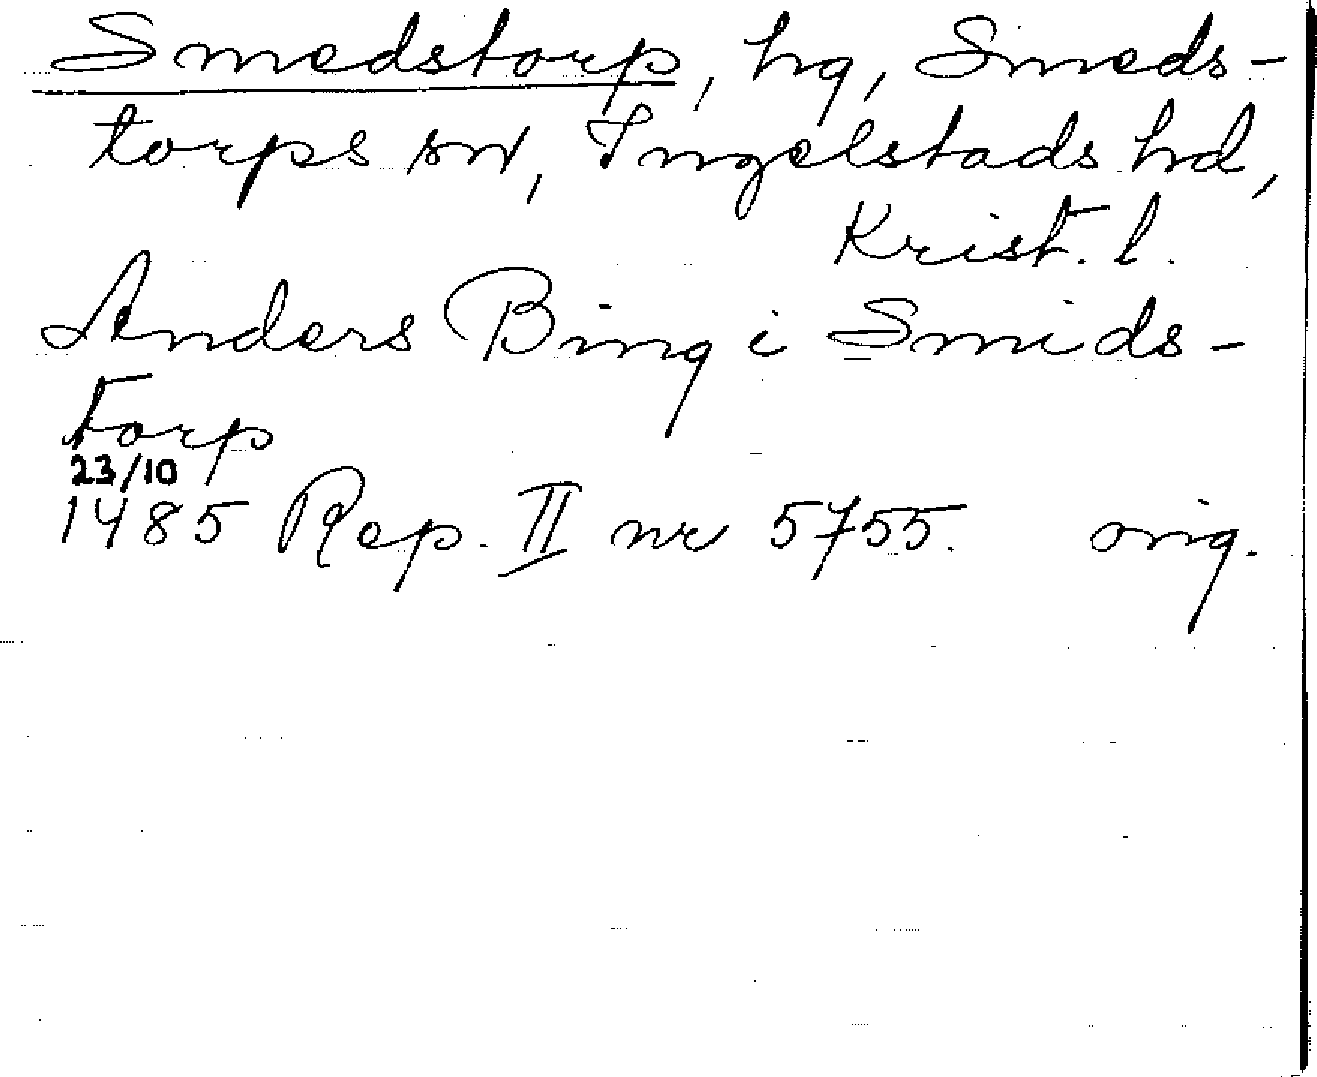 Smedstorp, hg, Smeds-
torps sn, Ingelstads hd,
Krist. l.
Anders Bing i Smids-
torp
23/10
1485 Rep. II nr 5755. orig.